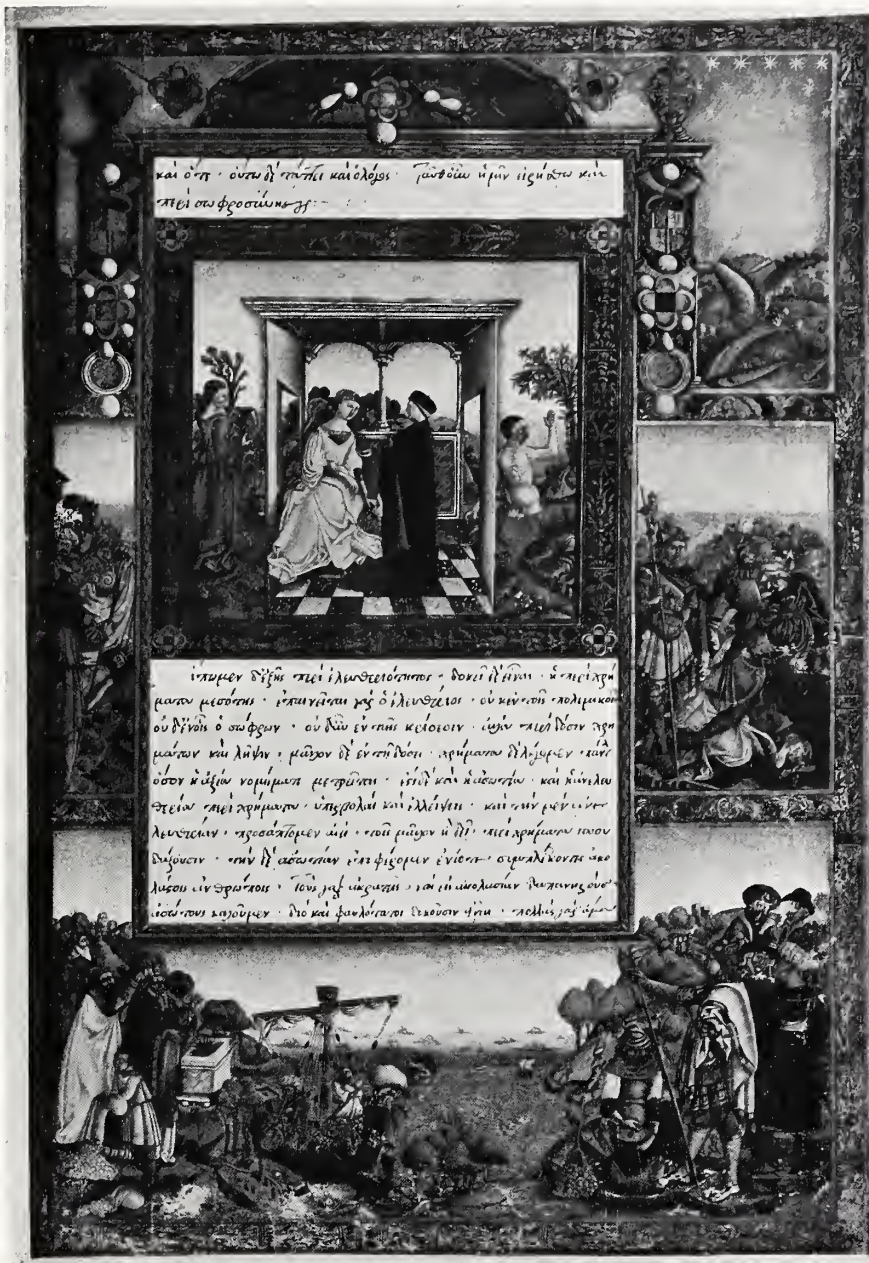 καὶ ὅτε · οὕτω δὲ τάττει καὶ ὁ λόγος · Ταῦθ' οὖν ἡμῖν εἰρήσθω καὶ
περὶ σωφροσύνης :-
έπωμεν δ' ἑξῆς περὶ ἐλευθεριότητος · δοκεῖ δ' εἶναι · ἡ περὶ χρή
ματα μεσότης · ἐπαινεῖται γὰρ ὁ ἐλευθέριος · οὐκ ἐν τοῖς πολεμικοῖς
οὐδ' ἐν οἷς ὁ σώφρων · οὐδ' αὖ ἐν ταῖς κρίσεσιν · ἀλλὰ περὶ δόσιν χρη
μάτων καὶ λῆψιν · μᾶλλον δ' ἐν τῇ δόσει · χρήματα δὲ λέγομεν πάντα
ὅσων ἡ ἀξία νομίσματι μετρεῖται · ἔστι δὲ καὶ ἡ ἀσωτία · καὶ ἡ ἀνελευ
θερία περὶ χρήματα · ὑπερβολαὶ καὶ ἐλλείψεις · καὶ τὴν μὲν ἀνε
λευθερίαν · προσάπτομεν ἀεὶ · τοῖς μᾶλλον ἢ δεῖ · περὶ χρήματα σπου
δάζουσιν · τὴν δ' ἀσωτίαν ἐπιφέρομεν ἐνίοτε · συμπλέκοντες ἀκο
λάστοις ἀνθρώποις · τοὺς γὰρ ἀκρατεῖς · καὶ εἰς ἀκολασίαν δαπανηροὺς
ἀσώτους καλοῦμεν · διὸ καὶ φαυλότατοι δοκοῦσιν εἶναι · πολλὰς γὰρ ἅμα